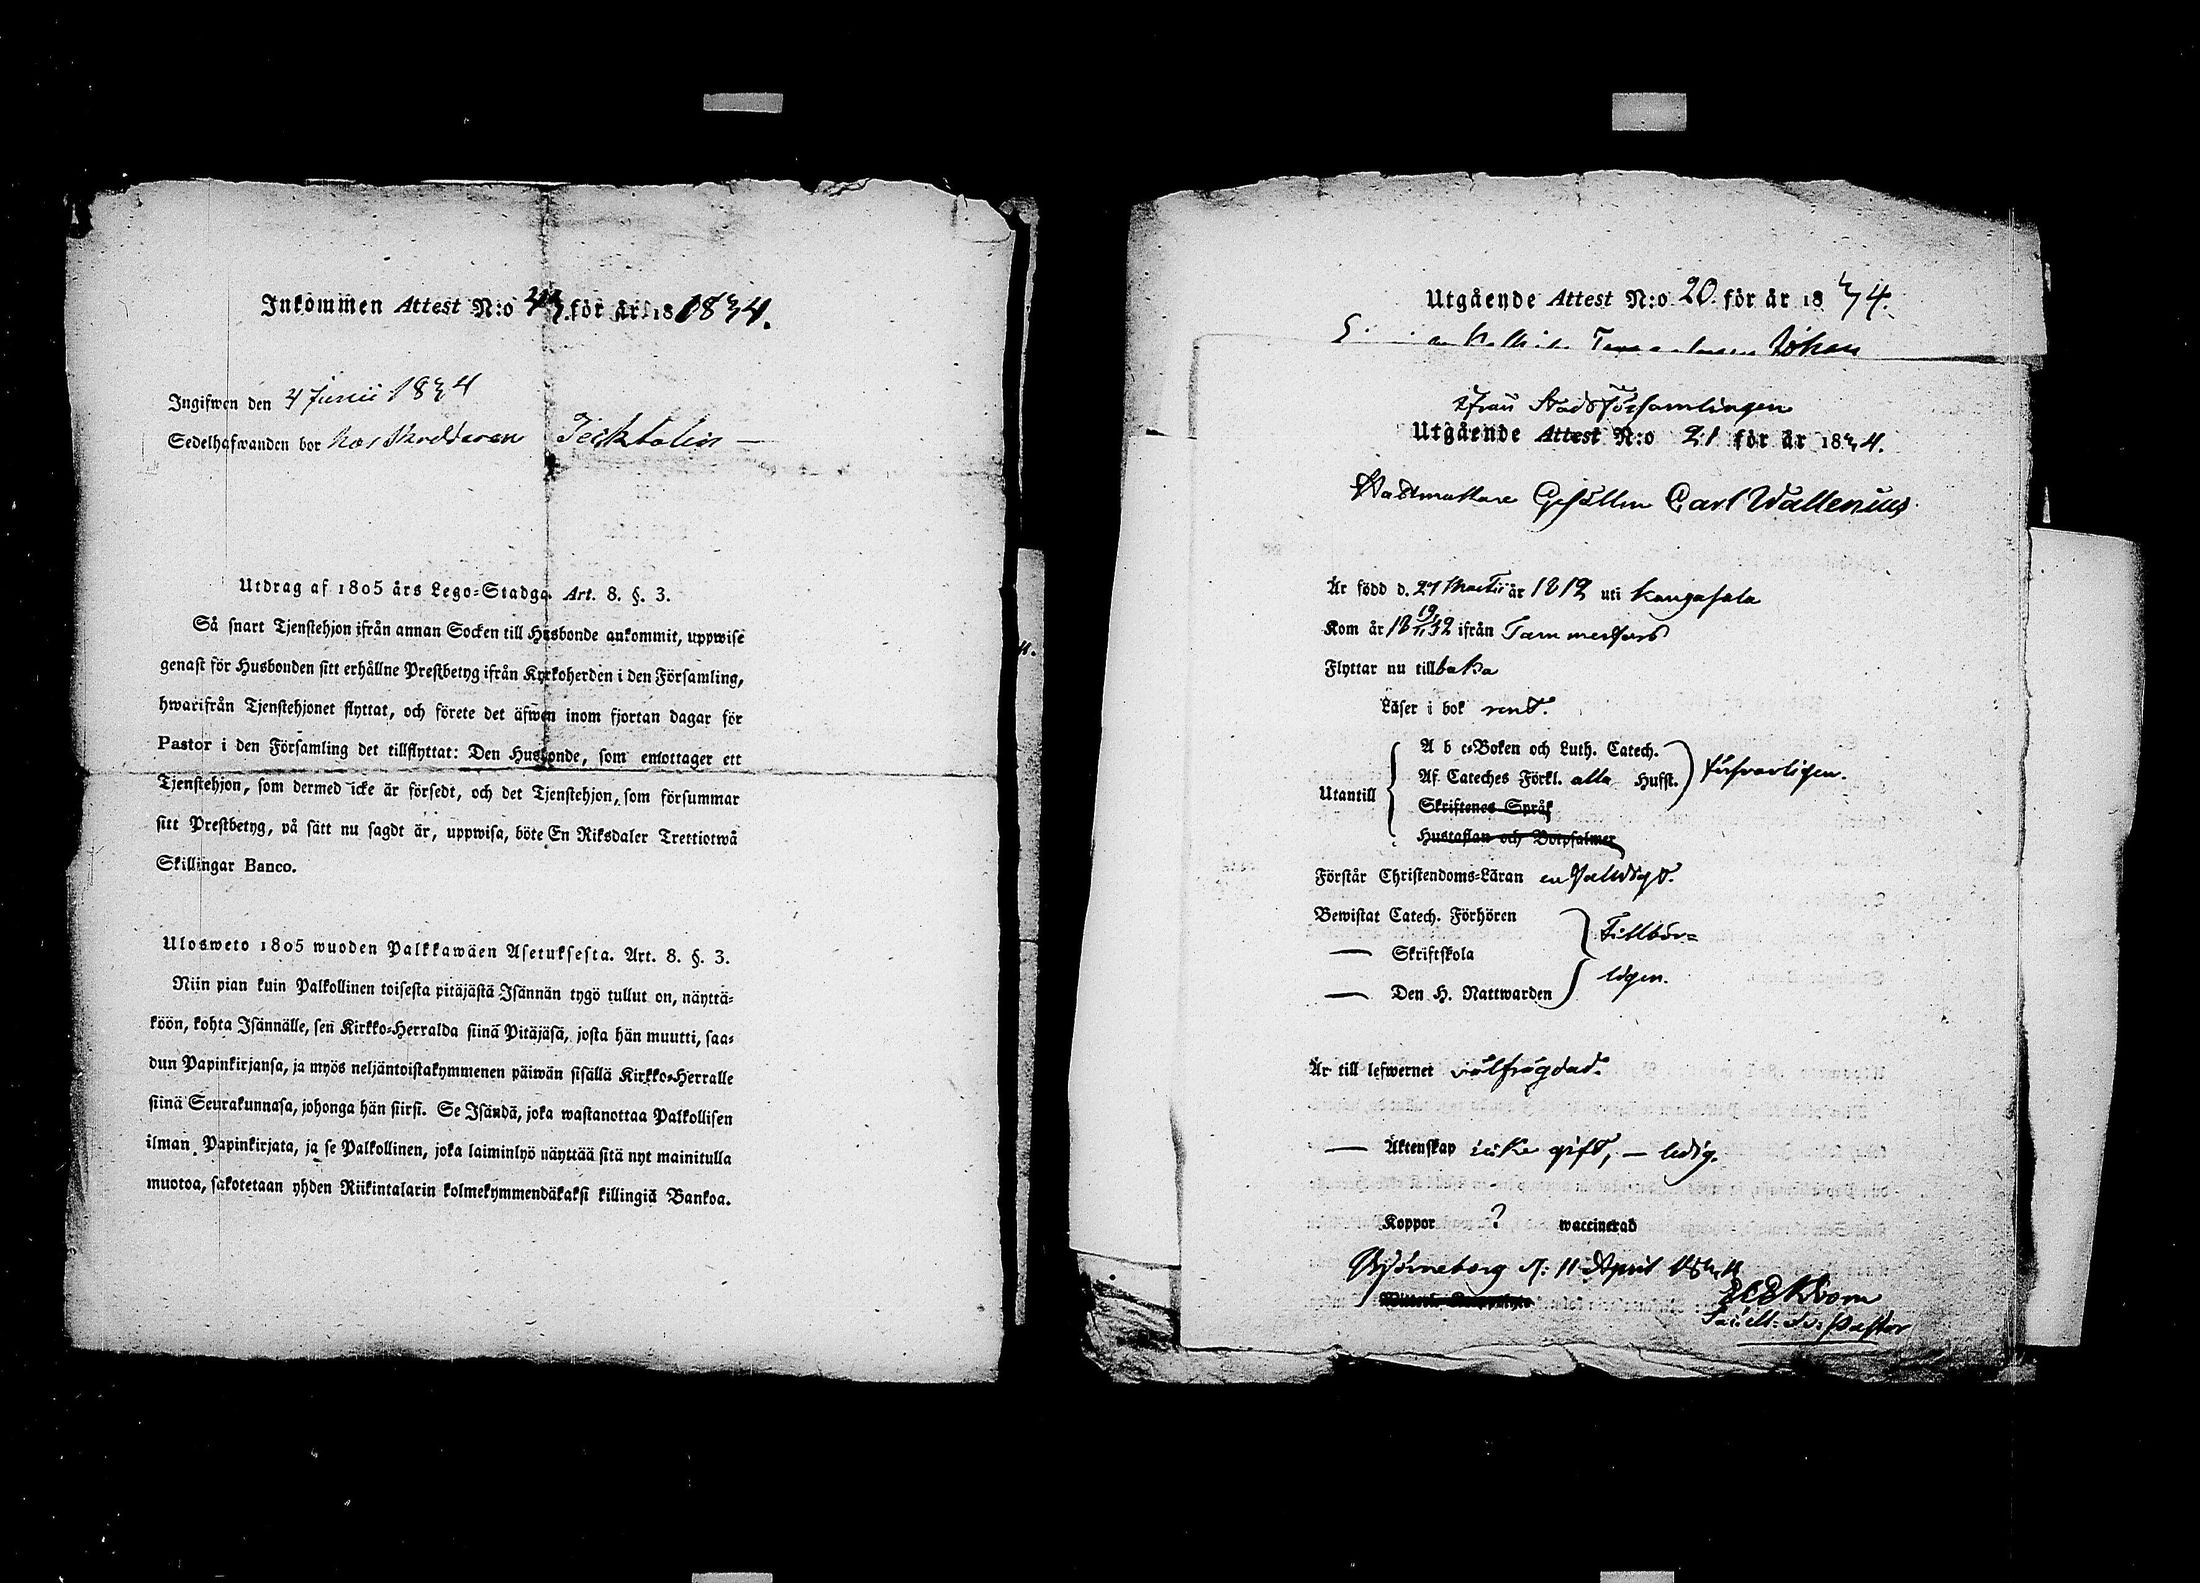 Inkommen Attest N:o 33 för år 18 1834.
Ingifwen den 4 Junii 1834
Sedelhafwanden bor hos Skräddaren
Utdrag af 1805 års Lego-Stadga. Art. 8. §. 3.
Så snart Tjenstehjon ifrån annan Socken till Husbonde ankommit, uppwise
genast för Husbonden sitt erhållne Prestbetyg ifrån Kyrkoherden i den Församling,
hwarifrån Tjenstehjonet flyttat, och förete det äfwen inom fjortan dagar för
Pastor i den Församling det tillflyttat: Den Husbonde, som emottager ett
Tjenstehjon, som dermed icke är försedt, och det Tjenstehjon, som försummar
sitt Prestbetyg, på sätt nu sagdt är, uppwisa, böte En Riksdaler Trettiotwå
Skillingar Banco.
Ulosweto 1805 wuoden Palkkawäen Asetuksesta. Art. 8. §. 3.
Niin pian kuin Palkollinen toisesta pitäjästä Isännän tygö tullut on, näyttä-
köön, kohta Isännälle, sen Kirkko-Herralda siinä Pitäjäsä, josta hän muutti, saa-
dun Papinkirjansa, ja myös neljäntoistakymmenen päiwän sisällä Kirkko-Herralle
siinä Seurakunnasa, johonga hän siirsi. Se Isändä, joka wastanottaa Palkollisen
ilman Papinkirjata, ja se Palkollinen, joka laiminlyö näyttää sitä nyt mainitulla
muotoa, sakotetaan yhden Riikintalarin kolmekymmendäkaksi killingiä Bankoa.
Utgående Attest N:o 20 för år 18 34.
Johan
ifrån Stadsförsamlingen
Utgående Attest N:o 21 för år 1834.
Hattmakare Gesällen Carl Wallenius
Är född d. 27 Martii år 1812 uti Kangasala
Kom år 18 19/11 32 ifrån Tammerfors
Flyttar nu tillbaka
Läser i bok rent.
A b c-Boken och Luth. Catech.
Af Cateches Förkl. alla Hufst. försvarligen.
Utantill
Skriftenes Språk
Hustaflan och Botpsalmer
Förstår Christendoms-Läran enfaldigt.
Bewistat Catech. Förhören
— Skriftskola Tillbör-
— Den H. Nattwarden ligen.
Är till lefwernet välfrägdad.
— Äktenskap icke gift, — ledig.
Koppor ? waccinerad
Björneborg d: 11 April 1834
Pastor